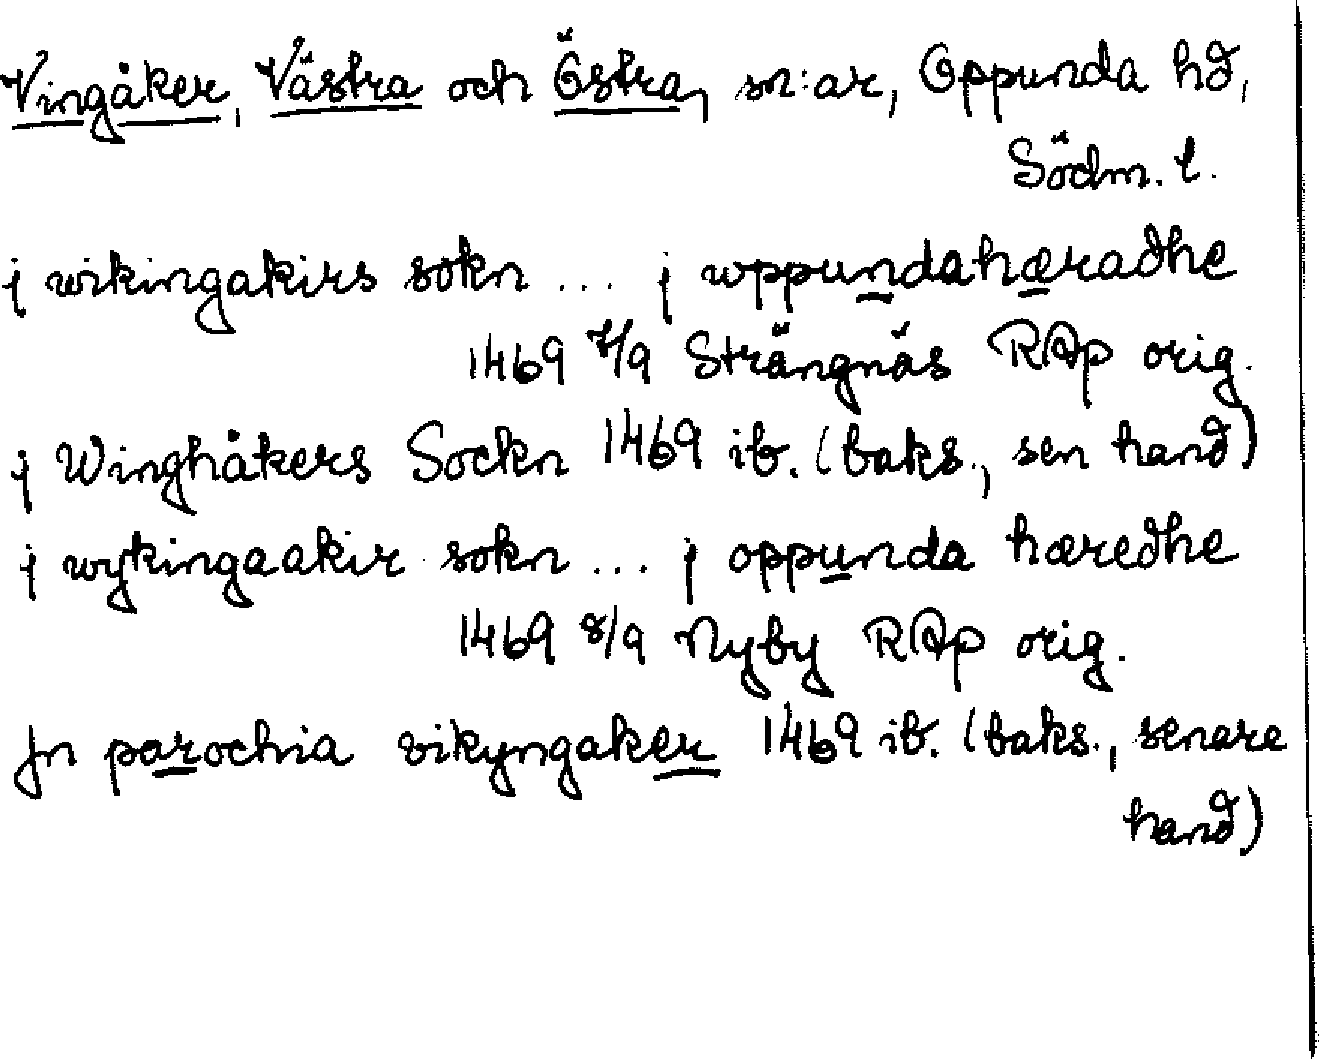 Vingåker, Västra och Östra, sn:ar, Oppunda hd,
Södm. l.
j wikingakirs sokn ... j wppundahæradhe
1469 7/9 Strängnäs RAp orig.
j Winghåkers Sockn 1469 ib. (baks., sen hand)
j wykingaakir sokn ... j oppunda hæredhe
1469 8/9 Nyby RAp orig.
Jn parochia vikyngaker 1469 ib. (baks., senare
hand)